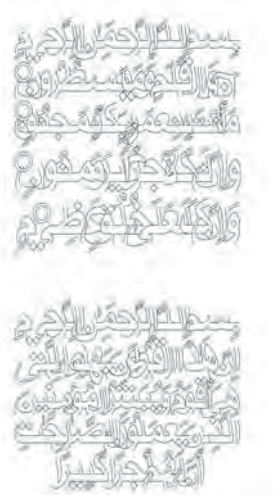 بسم الله الرحمن الرحيم
ن والقلم وما يسطرون
ما أنت بنعمة ربك بمجنون
وإن لك لأجرا غير ممنون
وإنك لعلى خلق عظيم
بسم الله الرحمن الرحيم
إن هذا القرآن يهدي للتي
هي أقوم ويبشر المؤمنين
الذين يعملون الصالحات
أن لهم أجرا كبيرا